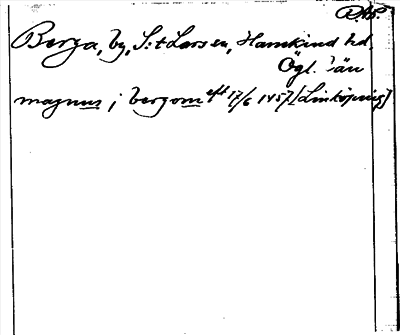 RAP.
Berga, by, S:t Lars sn, Hanekind hd,
Ögl. län
magnus j bergom eft 17/6 1457 [Linköping]